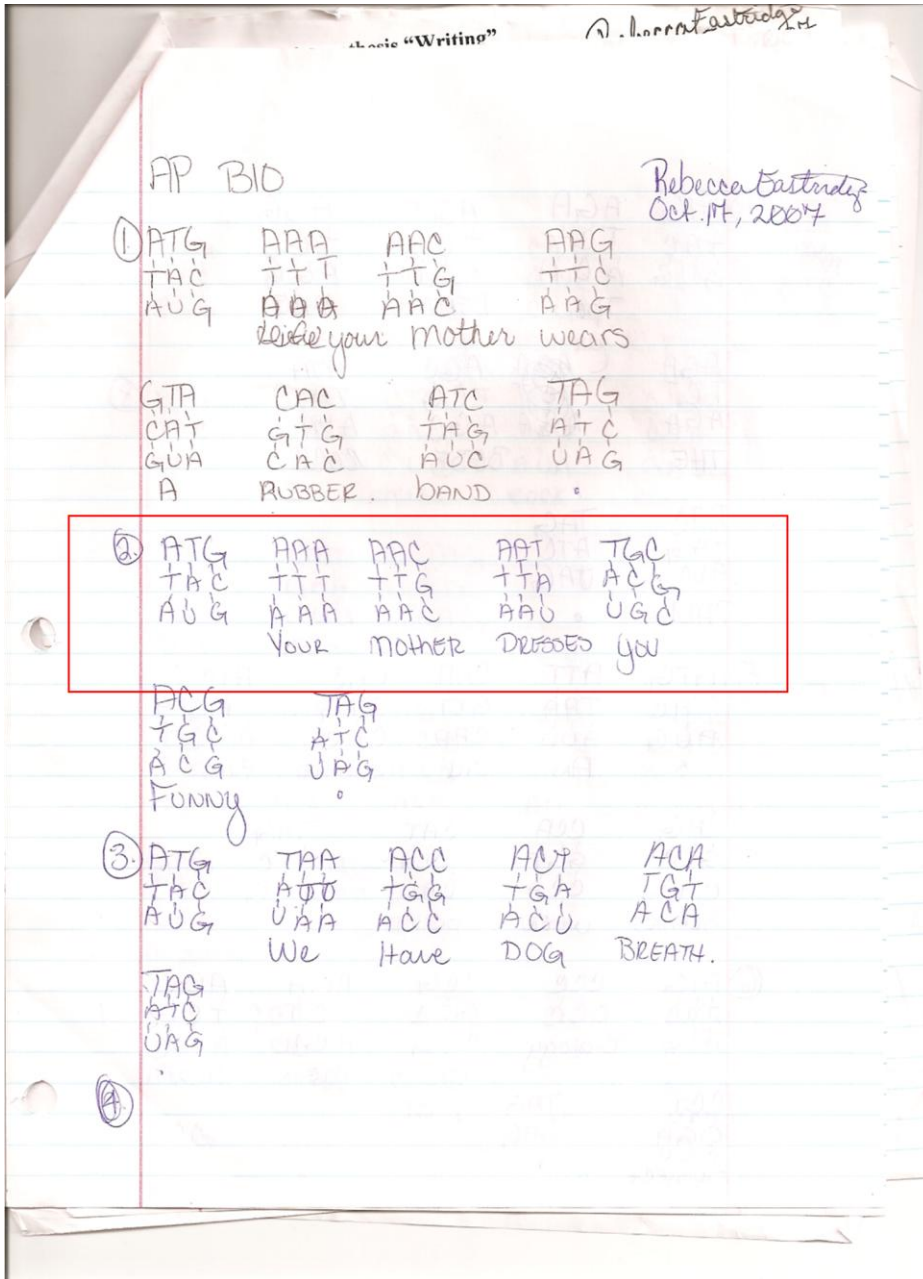 "Writing"
AP BIO
Rebecca Eastridge
Oct. 17, 2007
1. ATG AAA AAC AAG
TAC TTT TTG TTC
AUG AAA AAC AAG
your mother wears
GTA CAC ATC TAG
CAT GTG TAG ATC
GUA CAC AUC UAG
A RUBBER. bAND .
2. ATG AAA AAC AAT TGC
TAC TTT TTG TTA ACG
AUG AAA AAC AAU UGC
YOUR MOTHER DRESSES you
ACG TAG
TGC ATC
ACG UAG
FUNNY .
3. ATG TAA ACC ACT ACA
TAC ATT TGG TGA TGT
AUG UAA ACC ACU ACA
We Have DOG BREATH.
TAG
ATC
UAG
.
4.